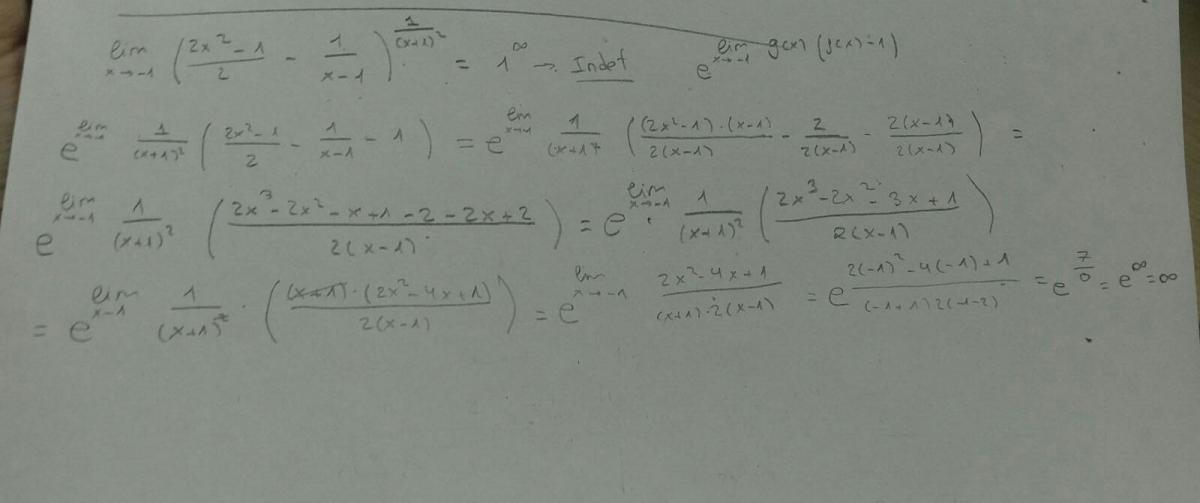 lim x→-1 ( (2x² - 1)/2 - 1/(x-1) )^(1/(x+1)²) = 1^∞ → Indet e^(lim x→-1 g(x) (f(x)-1))
e^(lim x→-1) 1/(x+1)² ( (2x²-1)/2 - 1/(x-1) - 1 ) = e^(lim x→-1) 1/(x+1)² ( (2x²-1)·(x-1)/2(x-1) - 2/2(x-1) - 2(x-1)/2(x-1) ) =
e^(lim x→-1) 1/(x+1)² ( (2x³-2x²-x+1-2-2x+2)/2(x-1) ) = e^(lim x→-1) · 1/(x+1)² ( (2x³-2x²-3x+1)/2(x-1) )
= e^(lim x→-1) 1/(x+1)² · ( (x+1)·(2x²-4x+1)/2(x-1) ) = e^(lim x→-1) (2x²-4x+1)/((x+1)·2(x-1)) = e^((2(-1)²-4(-1)+1)/((-1+1)2(-1-2))) = e^(7/0) = e^∞ = ∞